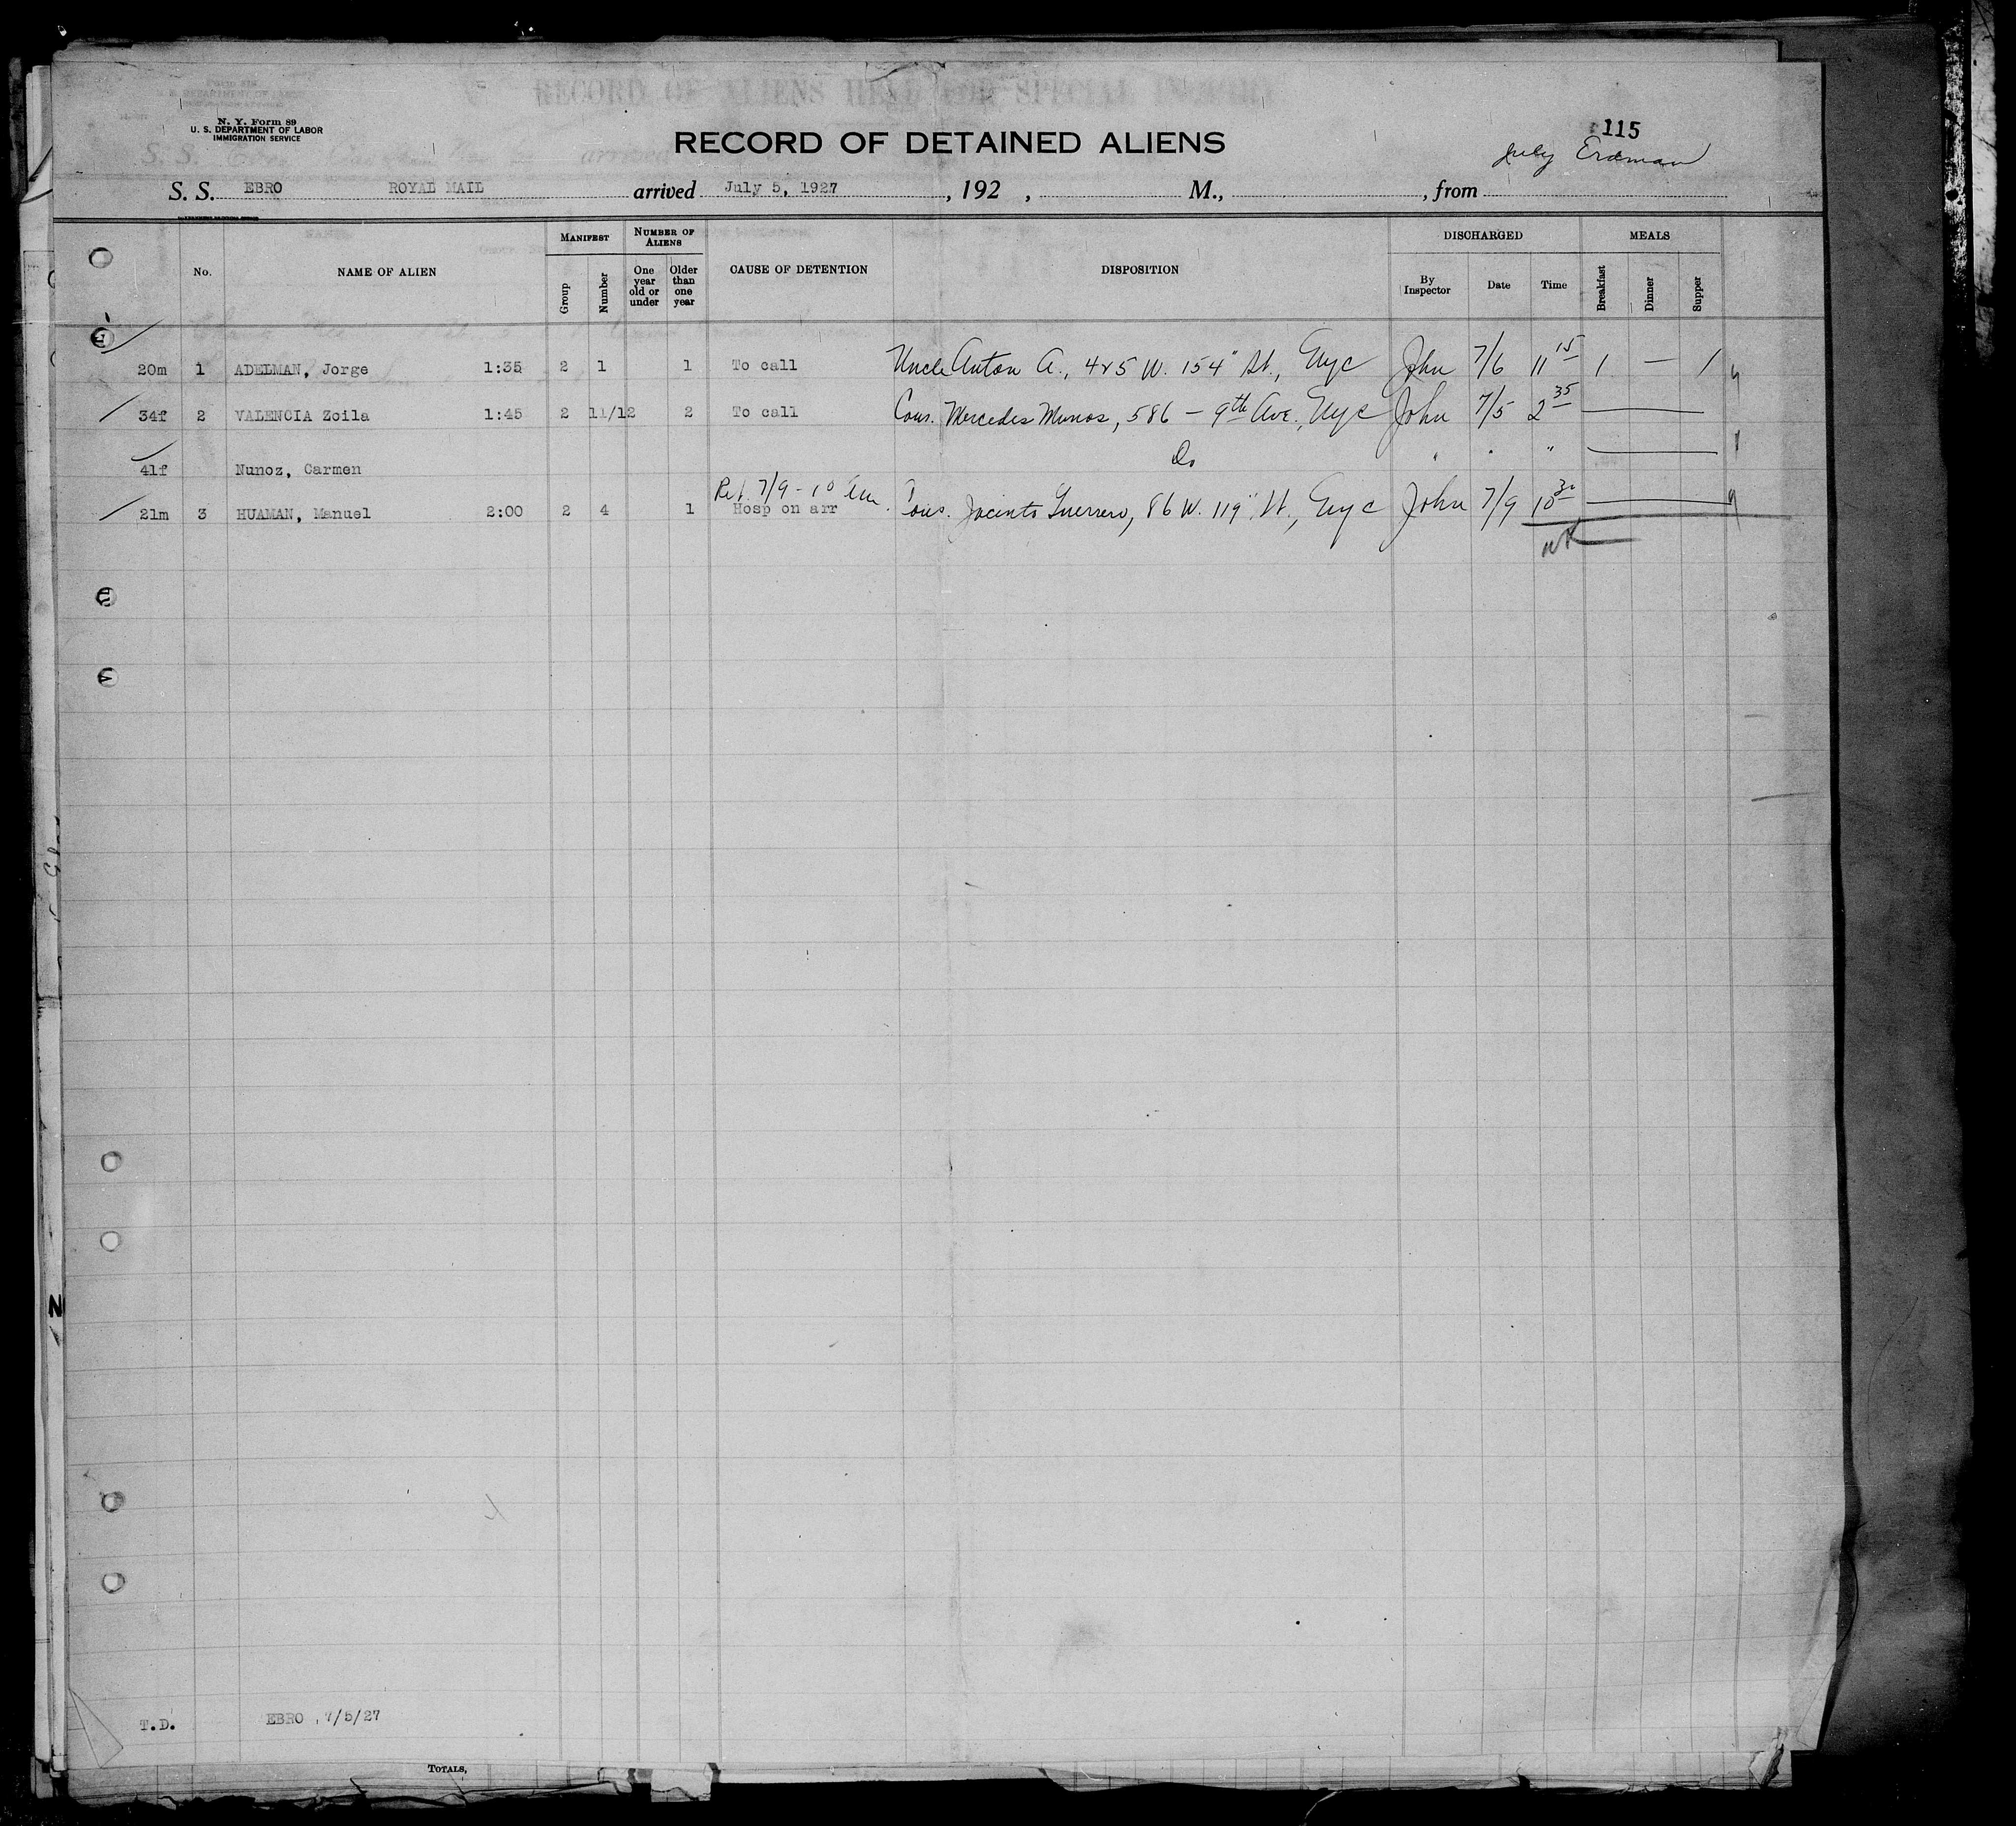 N. Y. Form 89
U. S. DEPARTMENT OF LABOR
IMMIGRATION SERVICE
RECORD OF ALIENS HELD FOR SPECIAL INQUIRY
RECORD OF DETAINED ALIENS
115
July Erdman
S. S. EBRO ROYAL MAIL arrived July 5, 1927, 192 , M., , from
No. NAME OF ALIEN MANIFEST NUMBER OF ALIENS CAUSE OF DETENTION DISPOSITION DISCHARGED MEALS
Group Number One year old or under Older than one year By Inspector Date Time Breakfast Dinner Supper
20m 1 ADELMAN, Jorge 1:35 2 1 1 To call Uncle Anton A., 425 W. 154" St., Nyc John 7/6 11 15 1 — 1
34f 2 VALENCIA Zoila 1:45 2 11/12 2 To call Cous. Mercedes Munos, 586 - 9th Ave., Nyc John 7/5 2 35
41f Nunoz, Carmen Do " " "
Ret. 7/9 - 10 am
21m 3 HUAMAN, Manuel 2:00 2 4 1 Hosp on arr Cous. Jacinto Guerrero, 86 W. 119" St., Nyc John 7/9 10 30
T.D. EBRO , 7/5/27
TOTALS,